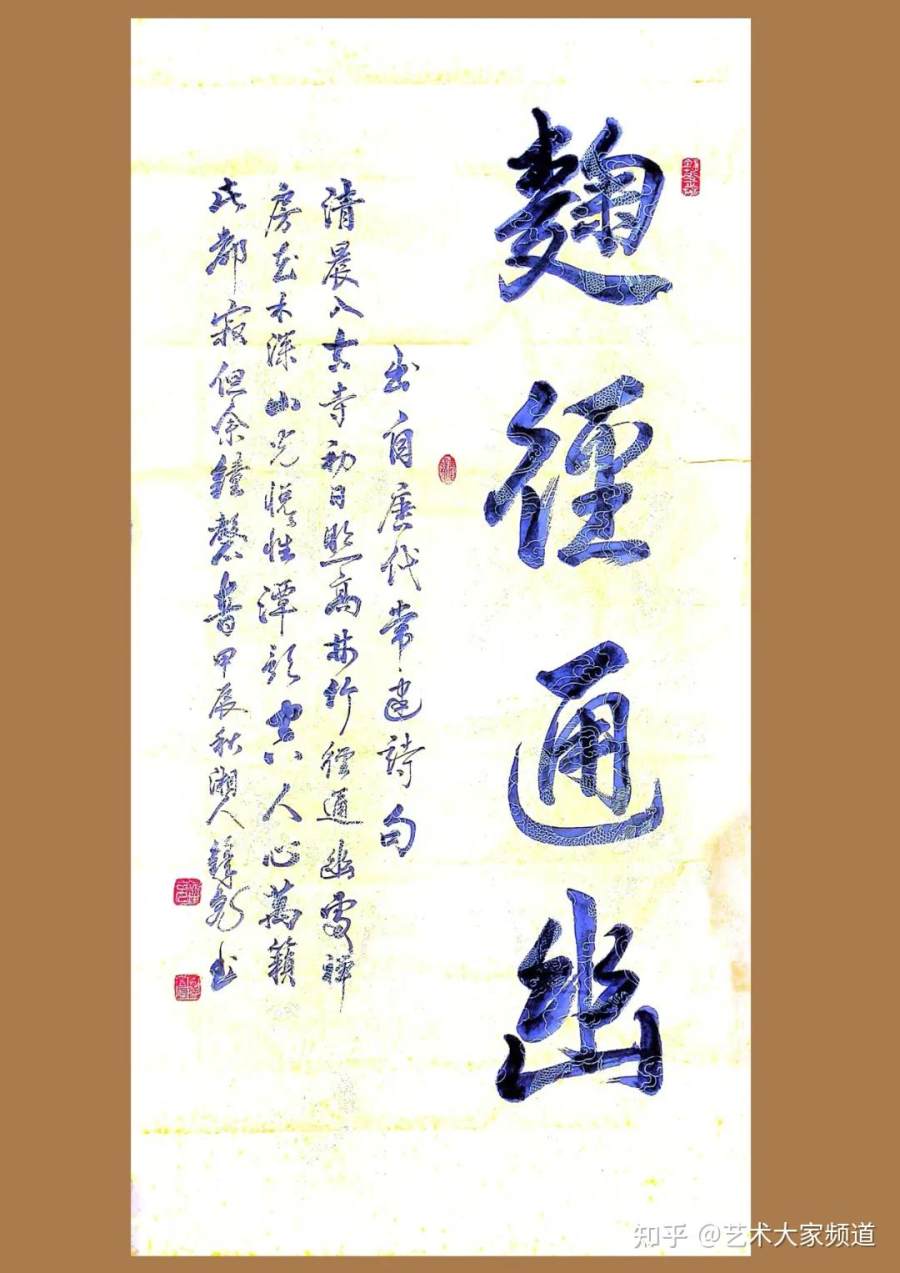 麴徑通幽
出自唐代常建詩句
清晨入古寺初日照高林竹徑通幽處禪
房花木深山光悅性潭影空人心萬籟
此都寂但余鐘磬音甲辰秋湘人書
知乎 @艺术大家频道